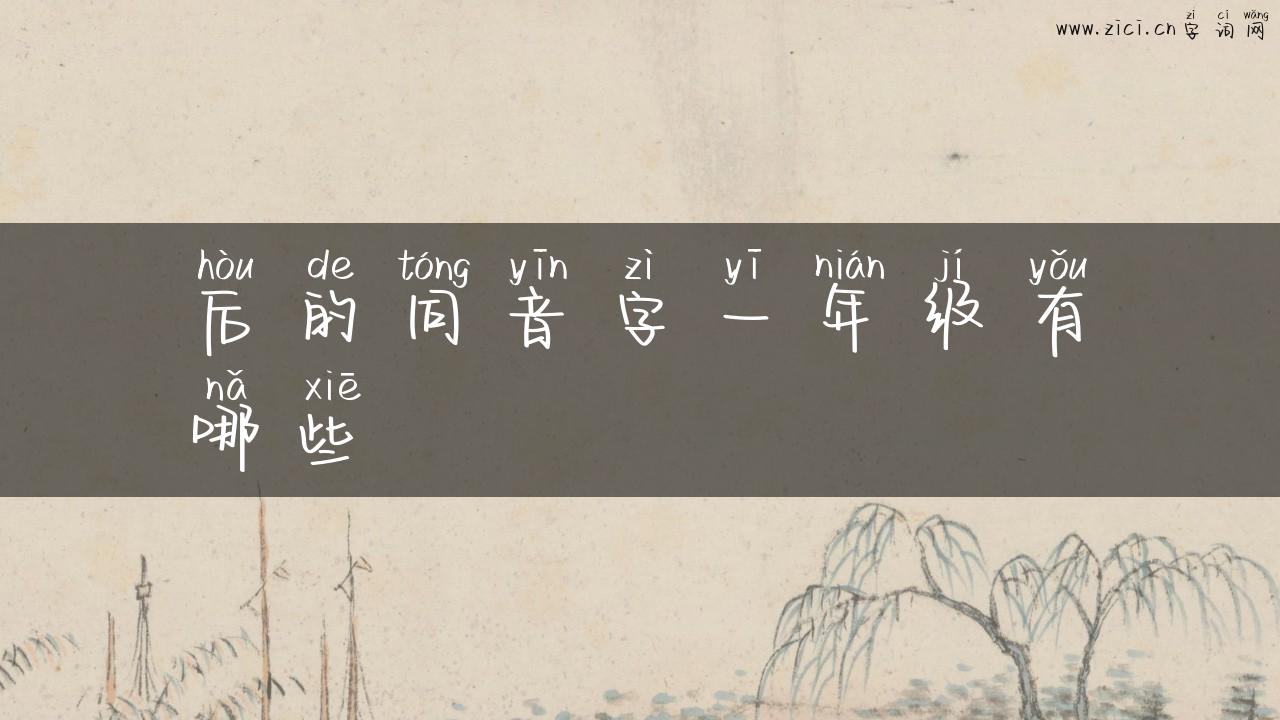 zì cí wǎng
www.zici.cn 字词网
hòu de tóng yīn zì yī nián jí yǒu
后的同音字一年级有
nǎ xiē
哪些